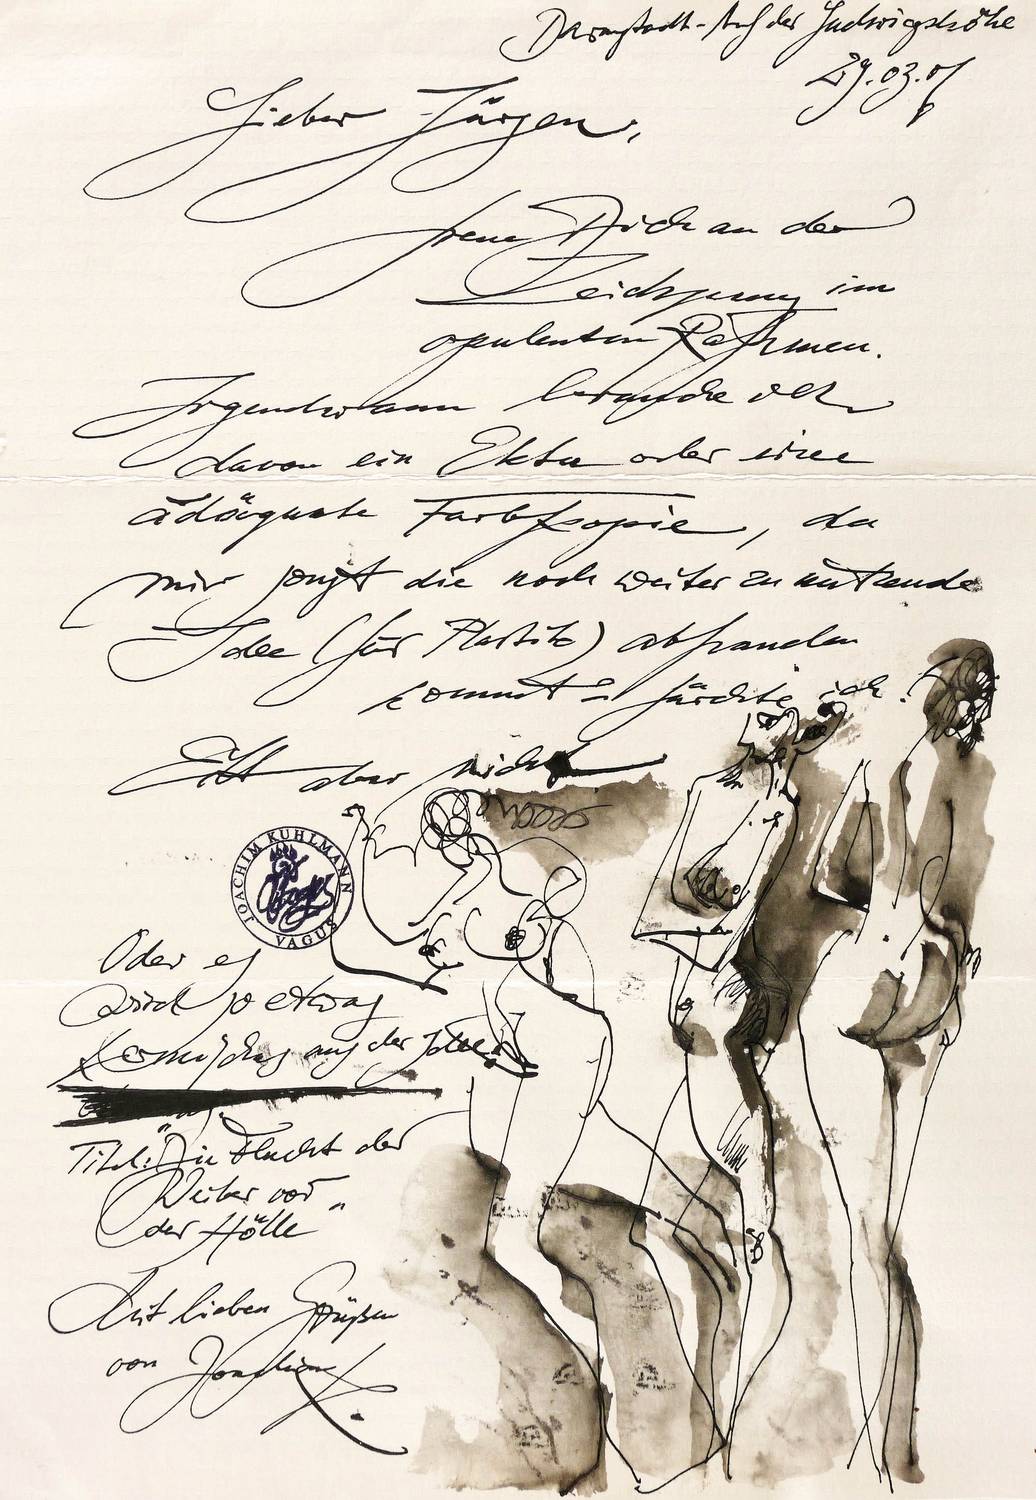 Darmstadt-Auf der Ludwigshöhe
29.03.01
Lieber Jürgen,
freue Dich an der
Zeichnung im
opulenten Rahmen.
Irgendwann brauche ich
davon ein Ekta oder eine
adäquate Farbkopie, da
mir sonst die noch weiter zu nutzende
Idee (für Plastik) abhanden
kommt, fürchte ich!
Eilt aber nicht
JOACHIM KUHLMANN
VAGUS
Oder es
wird so etwas
aus der Idee:
Titel: "Die Flucht der
Weiber vor
der Hölle"
Mit lieben Grüßen
von Joachim